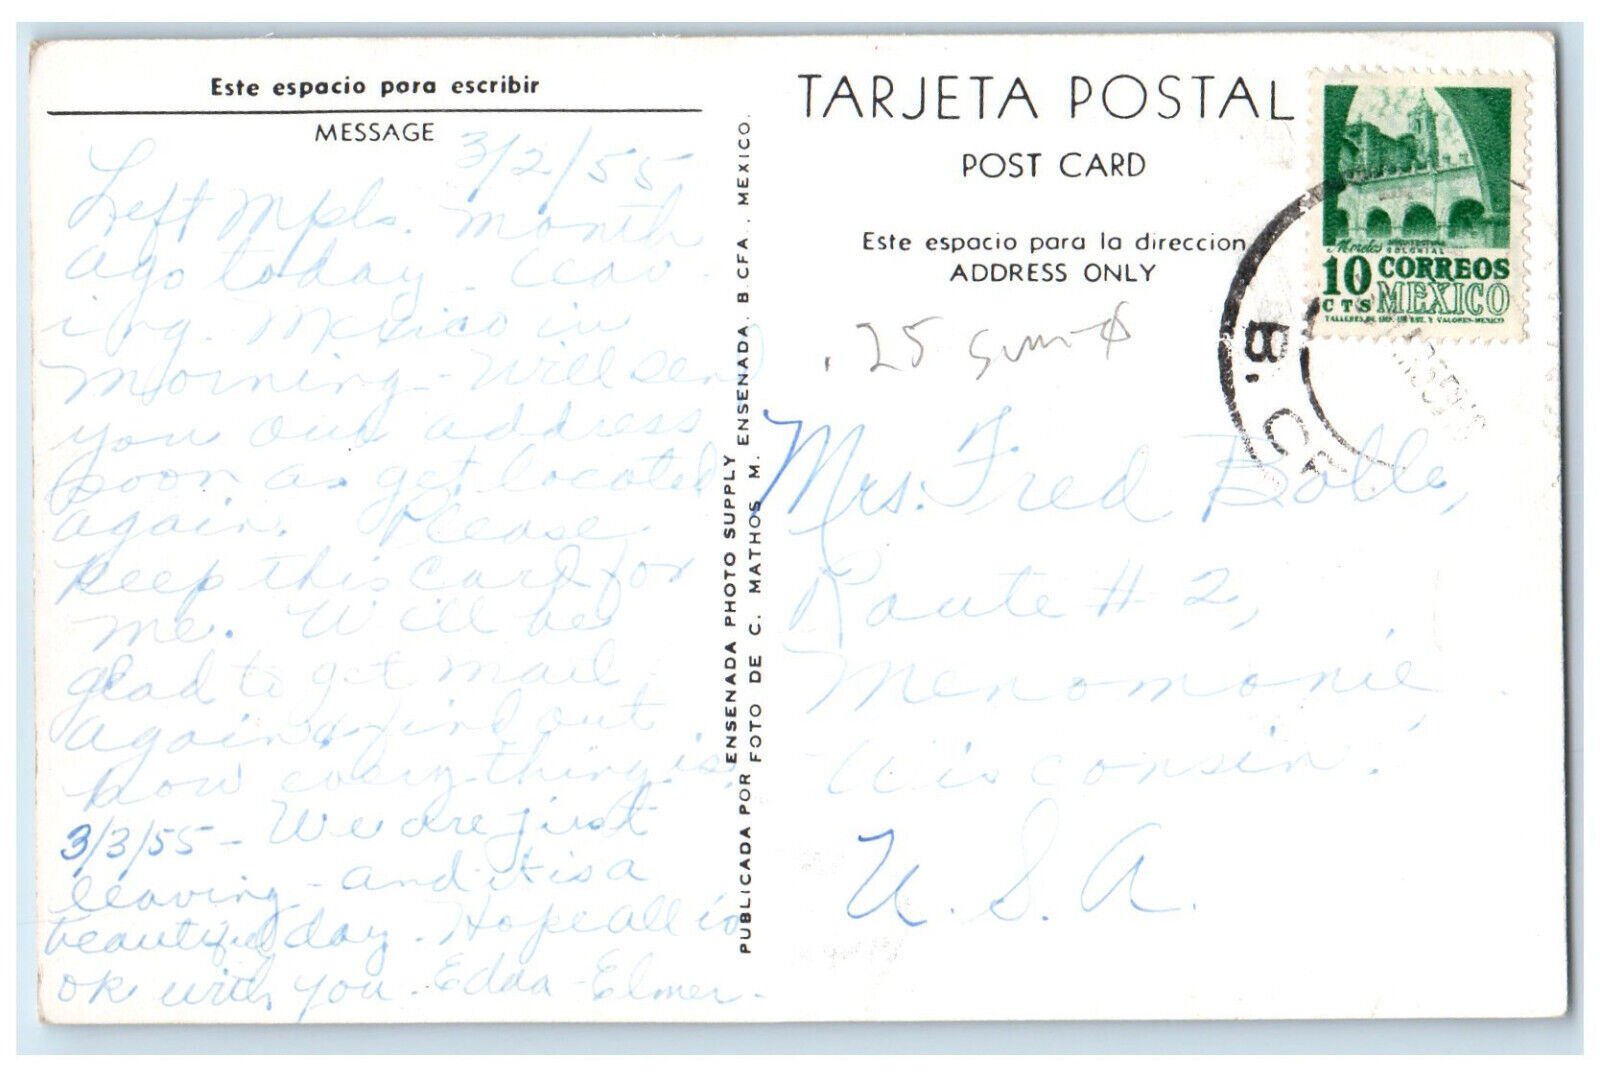 Este espacio para escribir
MESSAGE
3/2/55
Left Mpls. Month
ago today - leav-
ing Mexico in
Morning - Will send
you our address
soon as get located
again. Please
keep this card for
me. Will be
glad to get mail
again & find out
how everything is.
3/3/55 - We are just
leaving - and it is a
beautiful day. Hope all is
ok with you. Edda - Elmer.
PUBLICADA POR ENSENADA PHOTO SUPPLY ENSENADA, B. CFA., MEXICO.
FOTO DE C. MATHOS M.
TARJETA POSTAL
POST CARD
Este espacio para la direccion
ADDRESS ONLY
.25
Mrs. Fred Bolle,
Route # 2,
Menomonie
Wisconsin.
U. S. A.
Morelos ARQUITECTURA
COLONIAL
10 CTS CORREOS
MEXICO
TALLERES DE IMP. DE EST. Y VALORES-MEXICO
B. CF